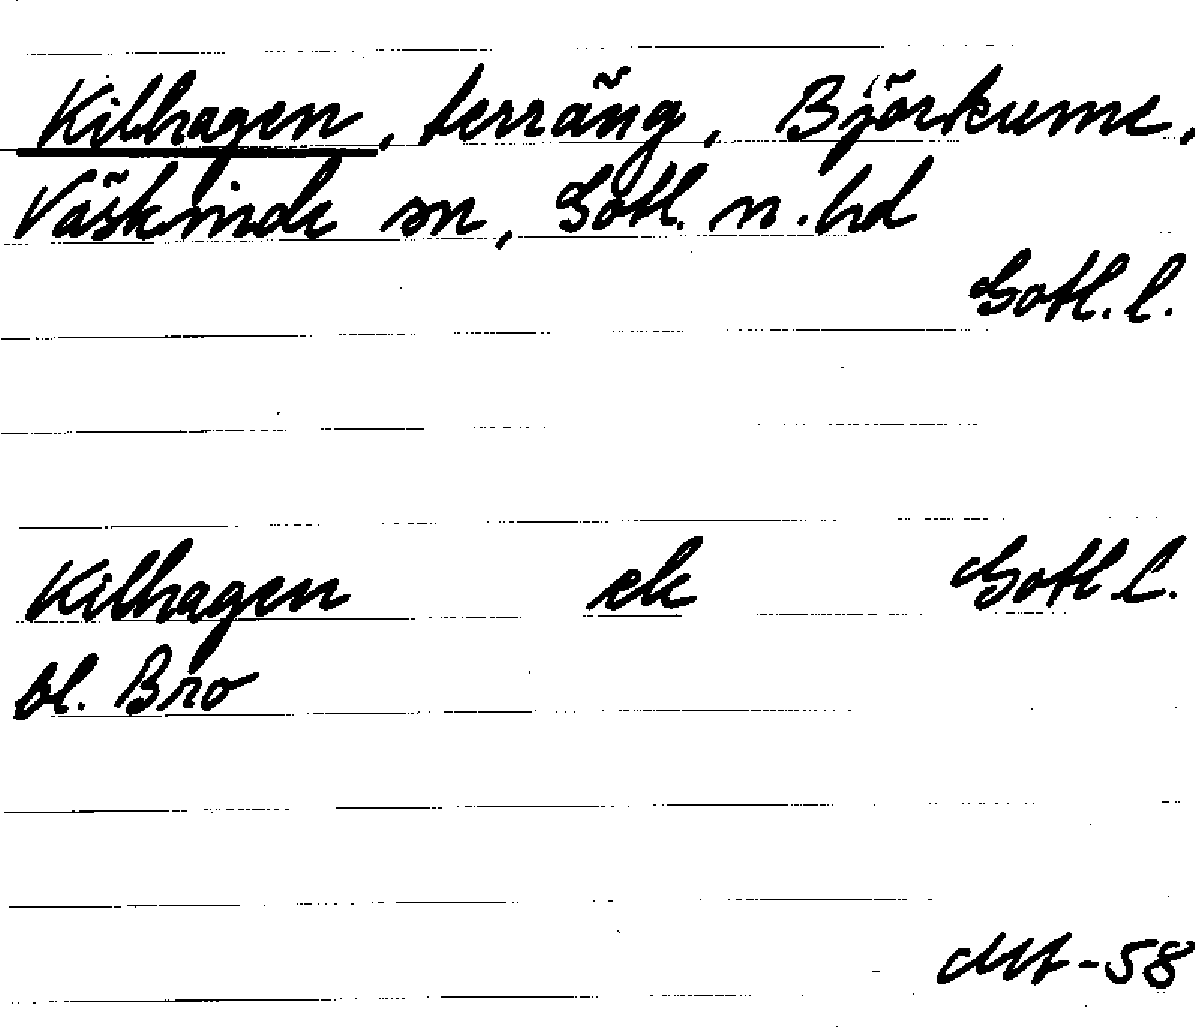 Kilhagen, terräng, Björkume,
Väskinde sn, Gotl. n. hd
Gotl. l.
Kilhagen ek Gotl l.
bl. Bro
-58